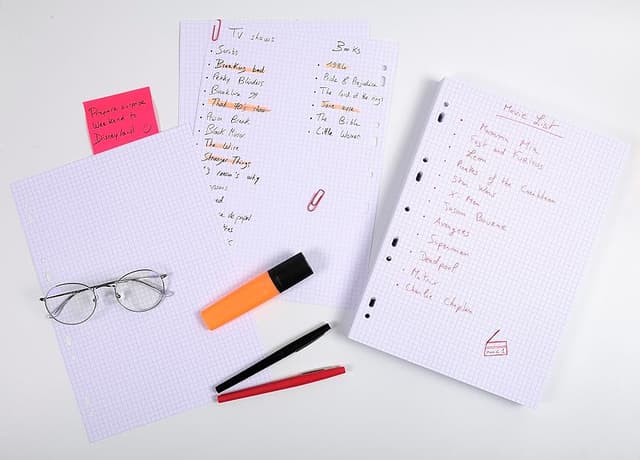 Prepare surprise
Weekend to
Disneyland
TV shows
• Scrubs
• Breaking bad
• Peaky Blinders
• Brooklin 99
• That 70's show
• Prison Break
• Black Mirror
• The Wire
• Stranger Things
13 reason's why
de papel
Books
• 1984
• Pride & Prejudice
• The Lord of the rings
• Jane eyre
• The Bible
• Little Women
Movie List
• Mamma Mia
• Fast and Furious
• Leon
• Pirates of the Caribbean
• Star Wars
• X Men
• Jason Bourne
• Avengers
• Superman
• Deadpool
• Matrix
• Charlie Chaplin